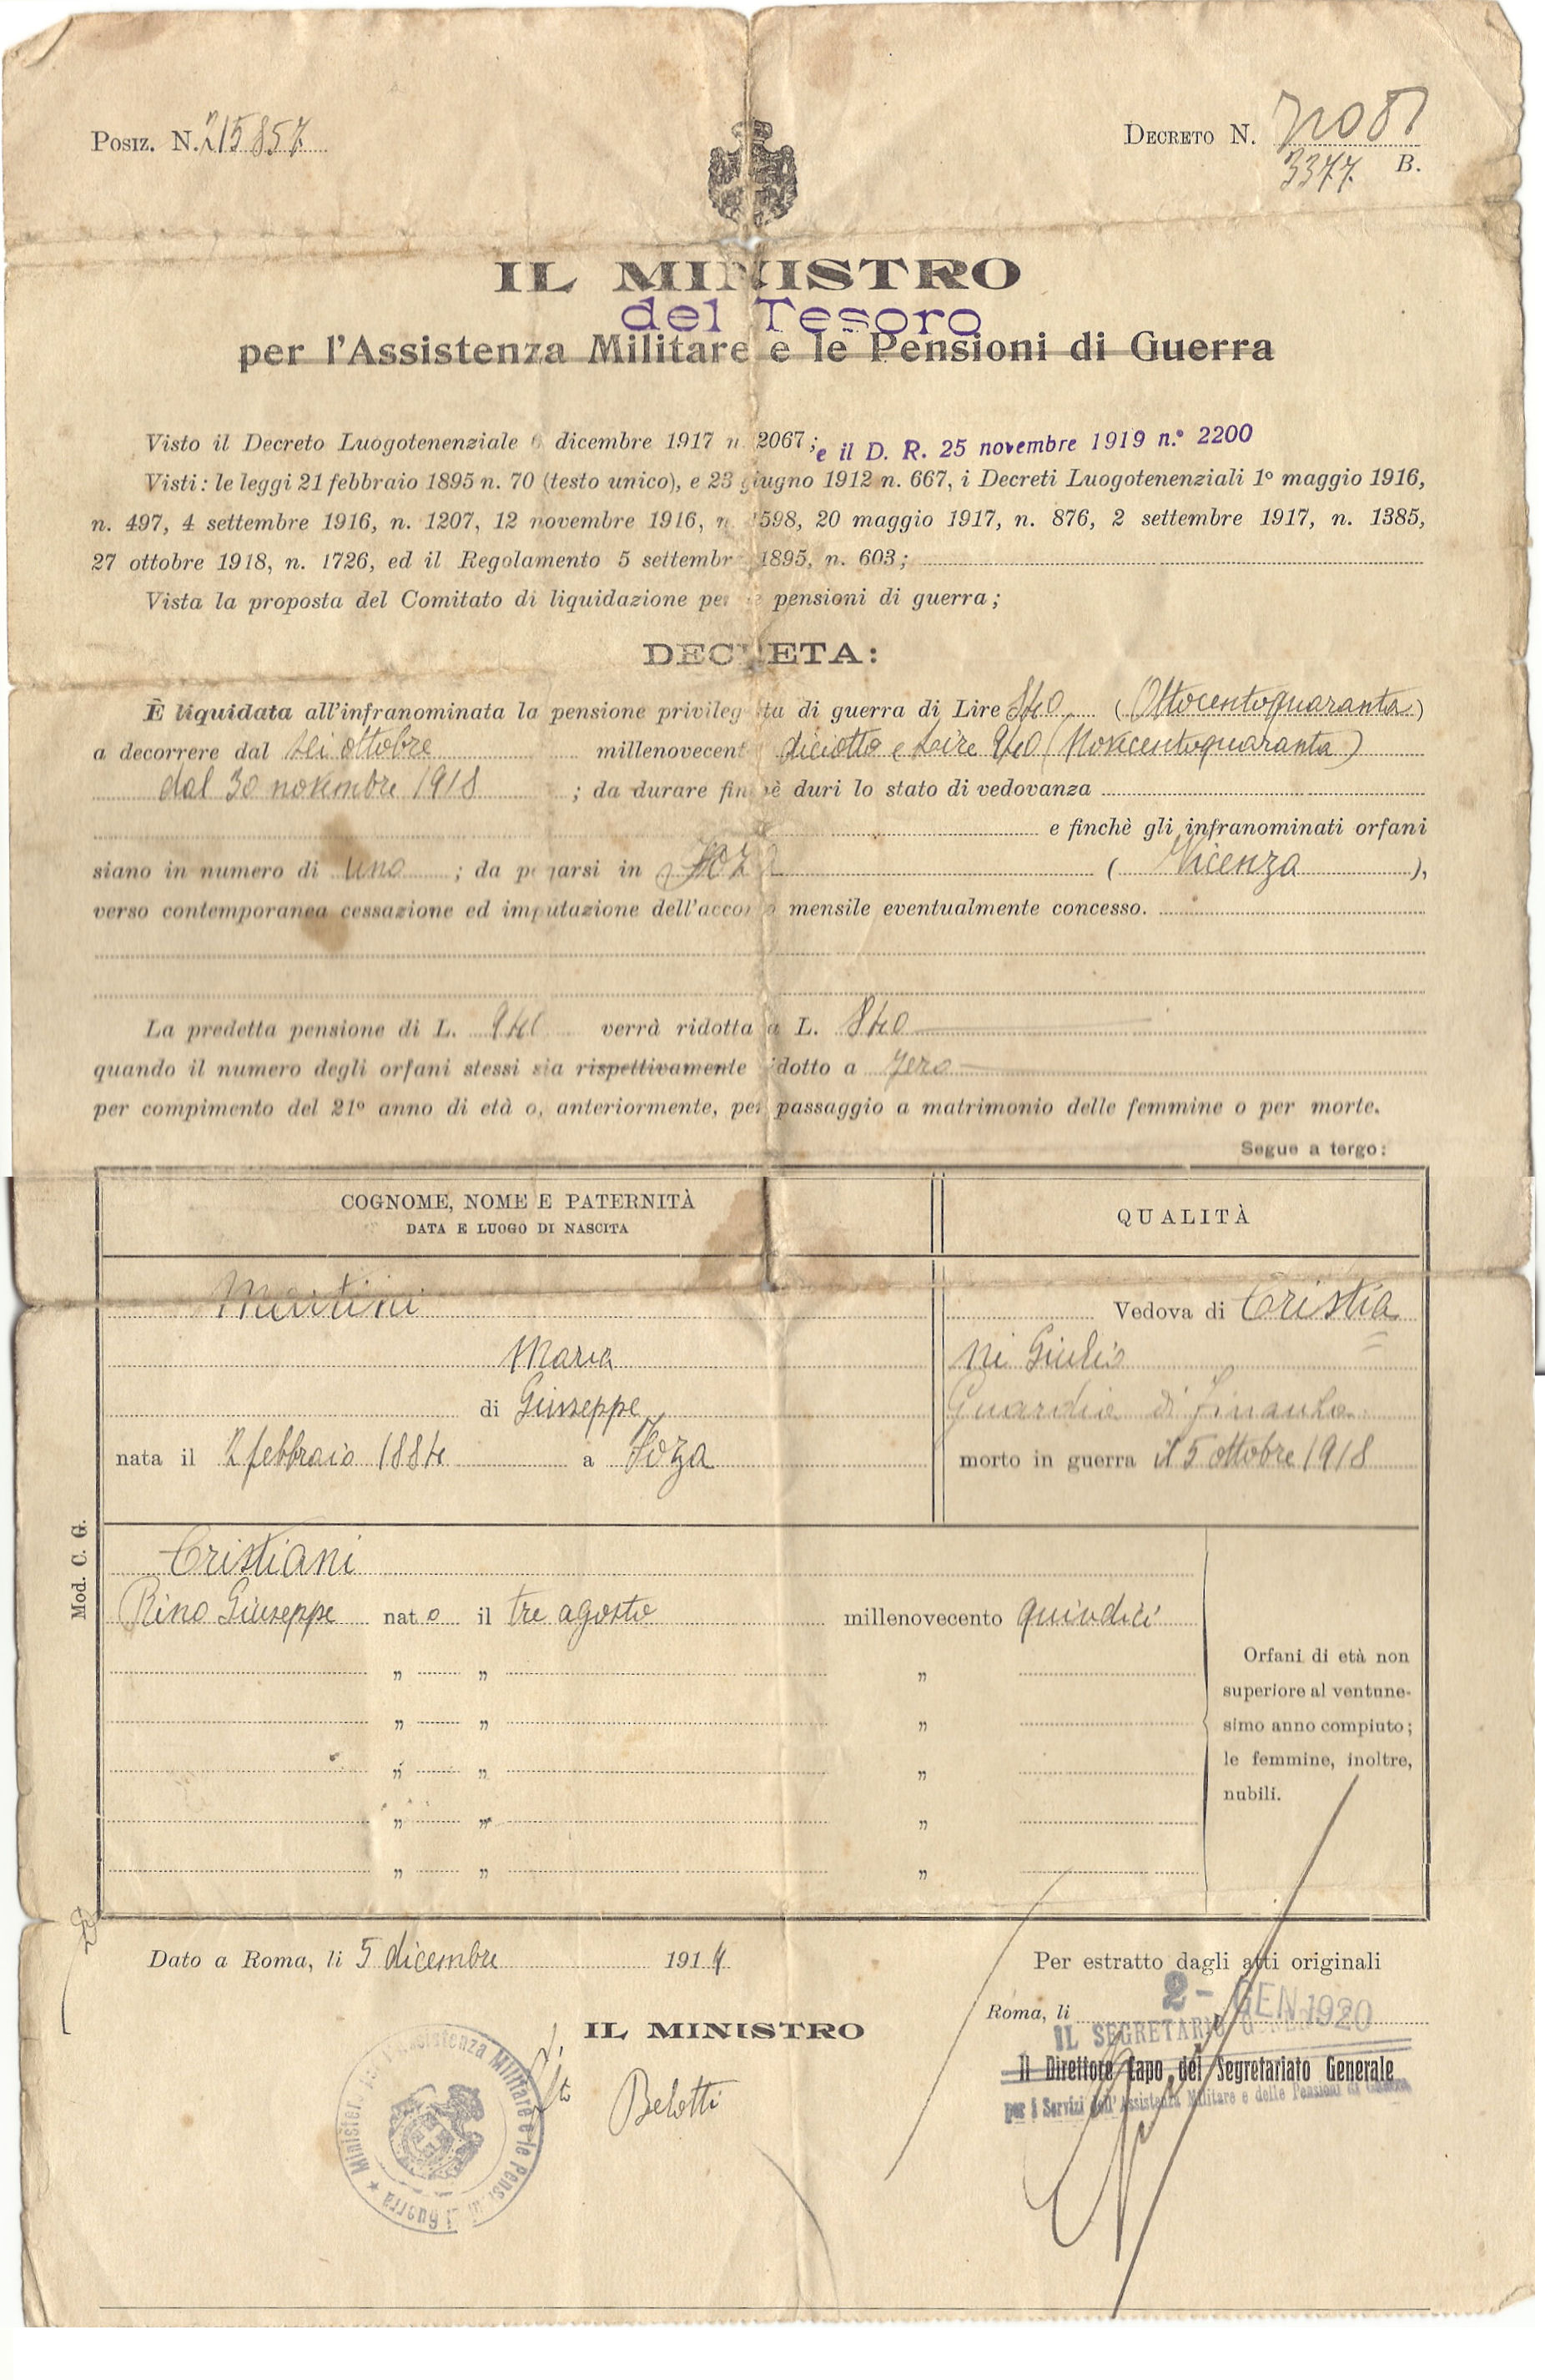 Posiz. N. 215857
Decreto N.
3377. B.
IL MINISTRO
del Tesoro
per l'Assistenza Militare e le Pensioni di Guerra
Visto il Decreto Luogotenenziale 6 dicembre 1917 n. 2067; e il D. R. 25 novembre 1919 n.° 2200
Visti: le leggi 21 febbraio 1895 n. 70 (testo unico), e 23 giugno 1912 n. 667, i Decreti Luogotenenziali 1° maggio 1916,
n. 497, 4 settembre 1916, n. 1207, 12 novembre 1916, n. 1598, 20 maggio 1917, n. 876, 2 settembre 1917, n. 1385,
27 ottobre 1918, n. 1726, ed il Regolamento 5 settembre 1895, n. 603;
Vista la proposta del Comitato di liquidazione per le pensioni di guerra;
DECRETA:
È liquidata all'infranominata la pensione privilegiata di guerra di Lire 840 (Ottocentoquaranta)
a decorrere dal sei ottobre millenovecento diciotto e Lire 940 (Novecentoquaranta)
dal 30 novembre 1918 ; da durare finchè duri lo stato di vedovanza
e finchè gli infranominati orfani
siano in numero di uno ; da pagarsi in Foza ( Vicenza ),
verso contemporanea cessazione ed imputazione dell'acconto mensile eventualmente concesso.
La predetta pensione di L. 940 verrà ridotta a L. 840
quando il numero degli orfani stessi sia rispettivamente ridotto a zero
per compimento del 21° anno di età o, anteriormente, per passaggio a matrimonio delle femmine o per morte.
Segue a tergo:
COGNOME, NOME E PATERNITÀ
DATA E LUOGO DI NASCITA
QUALITÀ
Martini
Vedova di Cristia
Maria
ni Giulio
di Giuseppe
Guardia di Finanza
nata il 2 febbraio 1884 a Foza
morto in guerra il 5 ottobre 1918
Cristiani
Rino Giuseppe nato il tre agosto millenovecento quindici
" " "
" " "
" " "
" " "
" " "
Orfani di età non
superiore al ventune-
simo anno compiuto;
le femmine, inoltre,
nubili.
Mod. C. G.
Dato a Roma, li 5 dicembre 1919
Per estratto dagli atti originali
Roma, li 2 - GEN 1920
IL MINISTRO
IL SEGRETARIO GENERALE
Il Direttore Capo del Segretariato Generale
per i Servizi dell'Assistenza Militare e delle Pensioni di Guerra
Belotti
Ministero per l'Assistenza Militare e le Pens. di Guerra